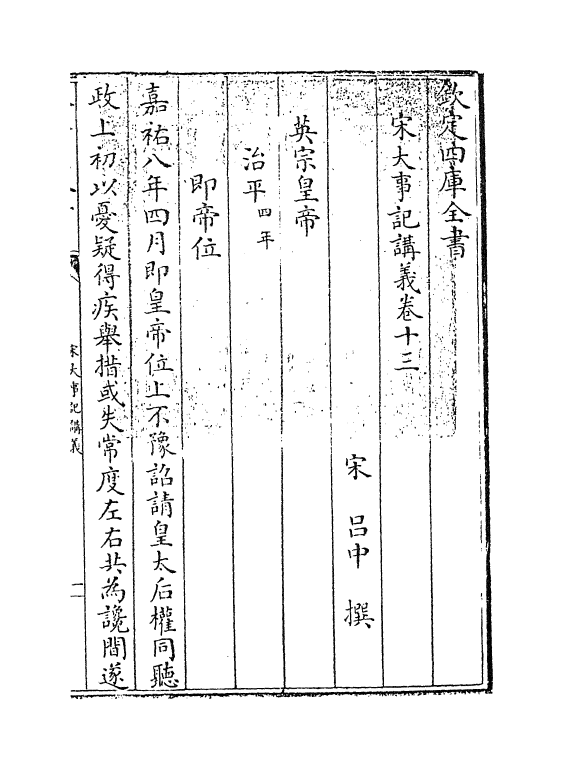 欽定四庫全書
宋大事記講義卷十三
宋 呂中 撰
英宗皇帝
治平四年
即帝位
嘉祐八年四月即皇帝位上不豫詔請皇太后權同聽
政上初以憂疑得疾舉措或失常度左右共為讒間遂
宋大事記講義